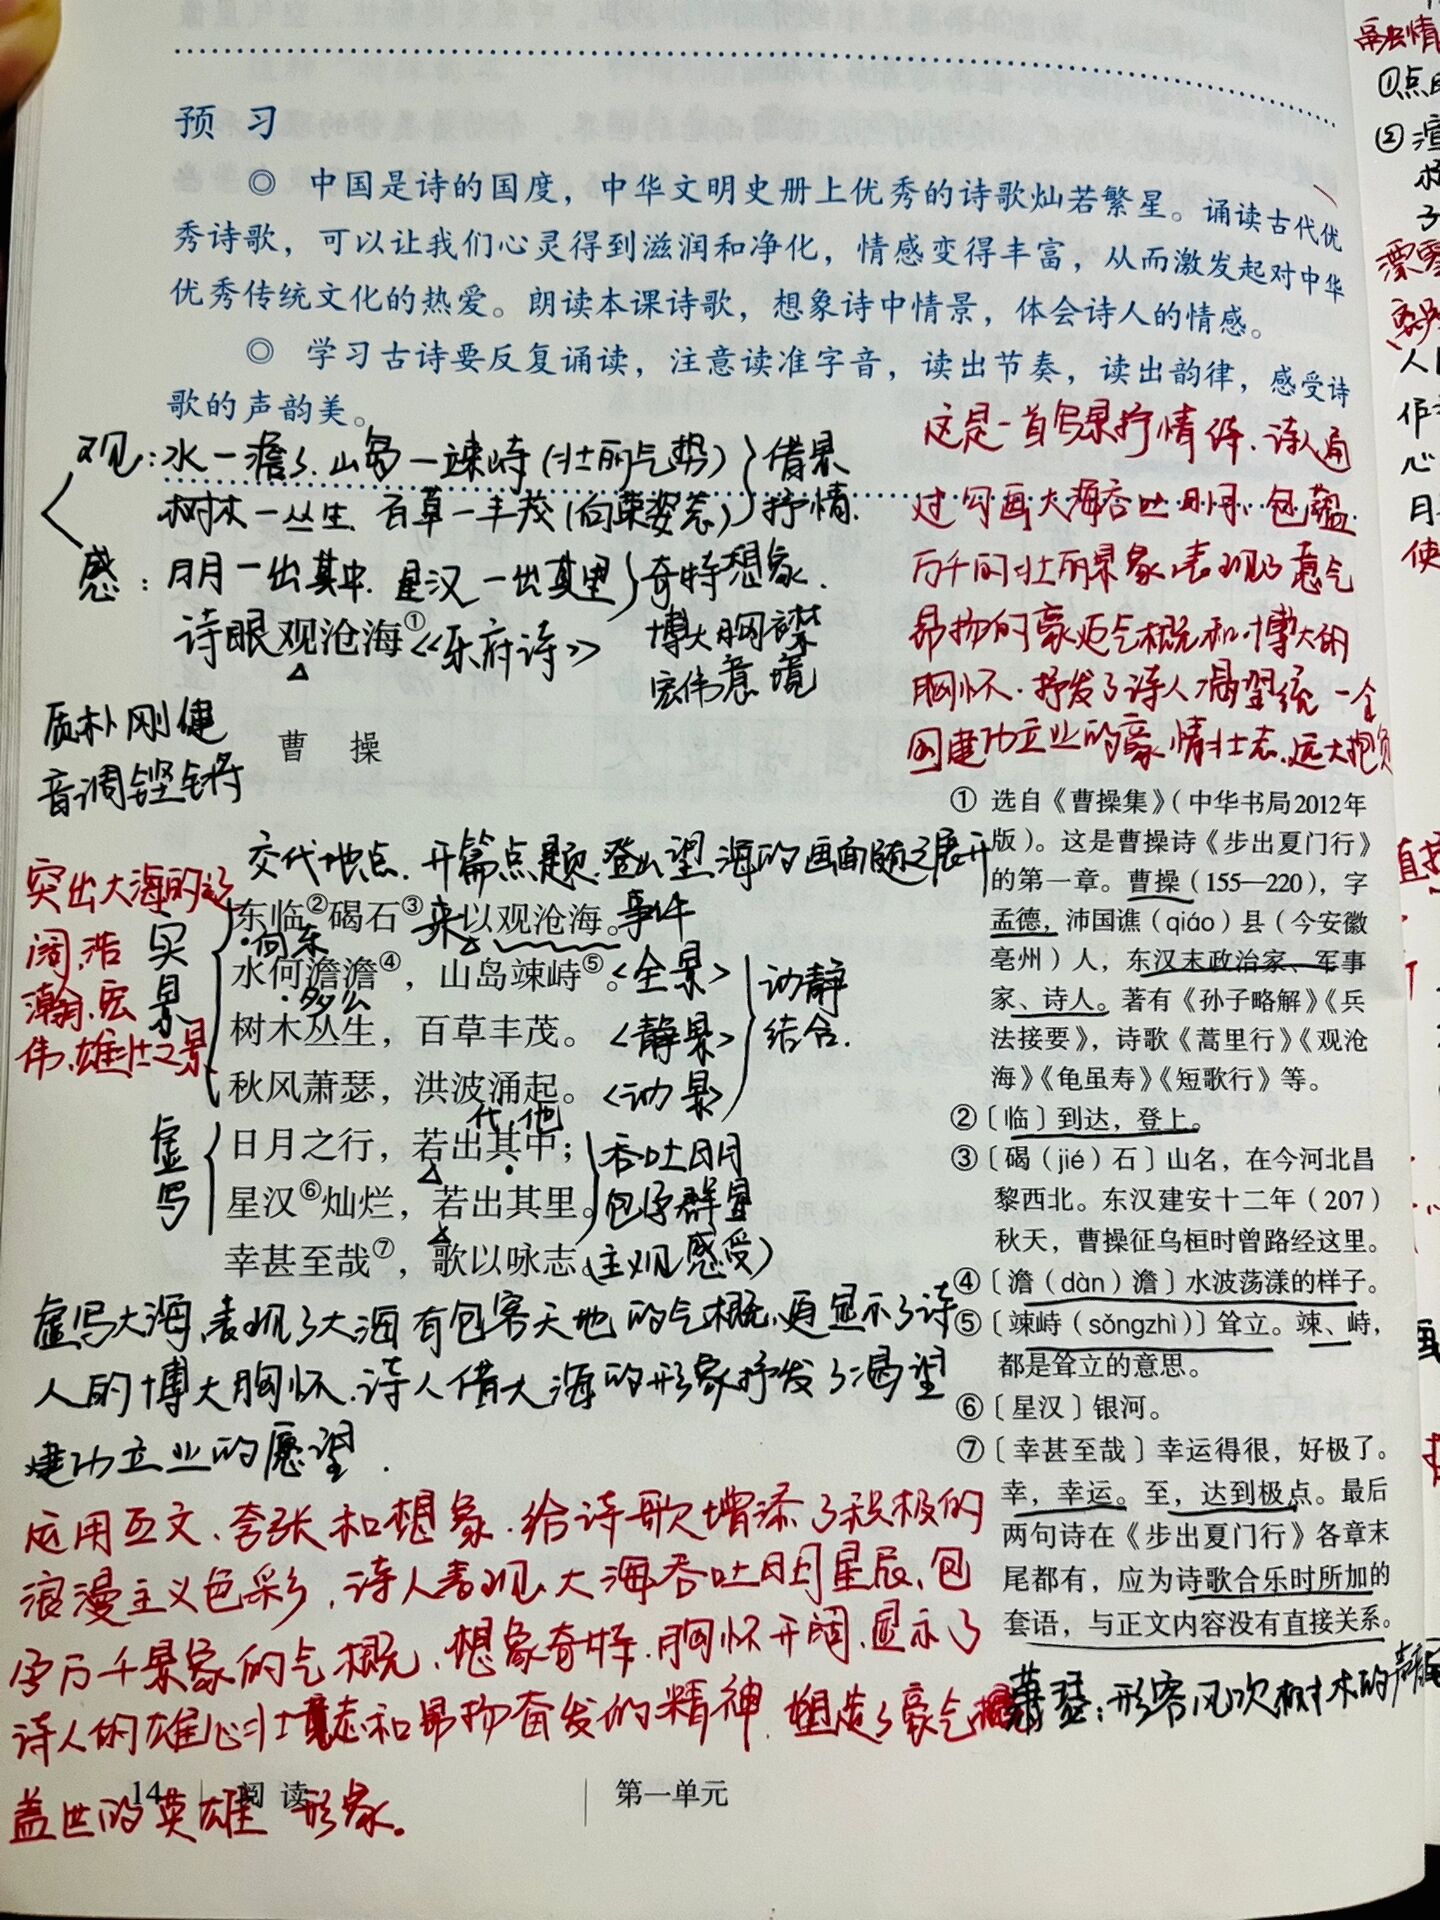 预 习
◎ 中国是诗的国度，中华文明史册上优秀的诗歌灿若繁星。诵读古代优
秀诗歌，可以让我们心灵得到滋润和净化，情感变得丰富，从而激发起对中华
优秀传统文化的热爱。朗读本课诗歌，想象诗中情景，体会诗人的情感。
◎ 学习古诗要反复诵读，注意读准字音，读出节奏，读出韵律，感受诗
歌的声韵美。
观：水一澹澹、山岛一竦峙(壮丽气势)
树木一丛生、百草一丰茂(向荣姿态)
借景
抒情.
感：日月一出其中.星汉一出其里
奇特想象.
博大胸襟
宏伟意境
诗眼
观沧海①
《乐府诗》
质朴刚健
音调铿锵
曹 操
这是一首写景抒情诗.诗人通
过勾画大海吞吐日月、包蕴
万千的壮丽景象,表现了意气
昂扬的豪迈气概和博大的
胸怀.抒发了诗人渴望统一全
国建功立业的豪情壮志、远大抱负
交代地点.开篇点题.登山望海的画面随之展开
突出大海的辽
阔,浩
瀚.宏
伟.雄壮之景
实
景
东临②碣石③，以观沧海。
来
事件
向东
水何澹澹④，山岛竦峙⑤。
<全景>
多么
树木丛生，百草丰茂。
<静景>
秋风萧瑟，洪波涌起。
<动景>
动静
结合.
虚
写
代、他
日月之行，若出其中；
星汉⑥灿烂，若出其里。
吞吐日月
包孕群星
幸甚至哉⑦，歌以咏志。
(主观感受)
虚写大海,表现了大海有包容天地的气概,更显示了诗
人的博大胸怀.诗人借大海的形象抒发了渴望
建功立业的愿望.
运用互文、夸张和想象.给诗歌增添了积极的
浪漫主义色彩,诗人表现大海吞吐日月星辰、包
孕万千景象的气概,想象奇特.胸怀开阔,显示了
诗人的雄心壮志和昂扬奋发的精神.塑造了豪气
盖世的英雄形象。
① 选自《曹操集》（中华书局2012年
版）。这是曹操诗《步出夏门行》
的第一章。曹操（155—220），字
孟德，沛国谯（qiáo）县（今安徽
亳州）人，东汉末政治家、军事
家、诗人。著有《孙子略解》《兵
法接要》，诗歌《蒿里行》《观沧
海》《龟虽寿》《短歌行》等。
②〔临〕到达，登上。
③〔碣（jié）石〕山名，在今河北昌
黎西北。东汉建安十二年（207）
秋天，曹操征乌桓时曾路经这里。
④〔澹（dàn）澹〕水波荡漾的样子。
⑤〔竦峙（sǒngzhì）〕耸立。竦、峙，
都是耸立的意思。
⑥〔星汉〕银河。
⑦〔幸甚至哉〕幸运得很，好极了。
幸，幸运。至，达到极点。最后
两句诗在《步出夏门行》各章末
尾都有，应为诗歌合乐时所加的
套语，与正文内容没有直接关系。
萧瑟：形容风吹树木的声音
14 阅读
第一单元